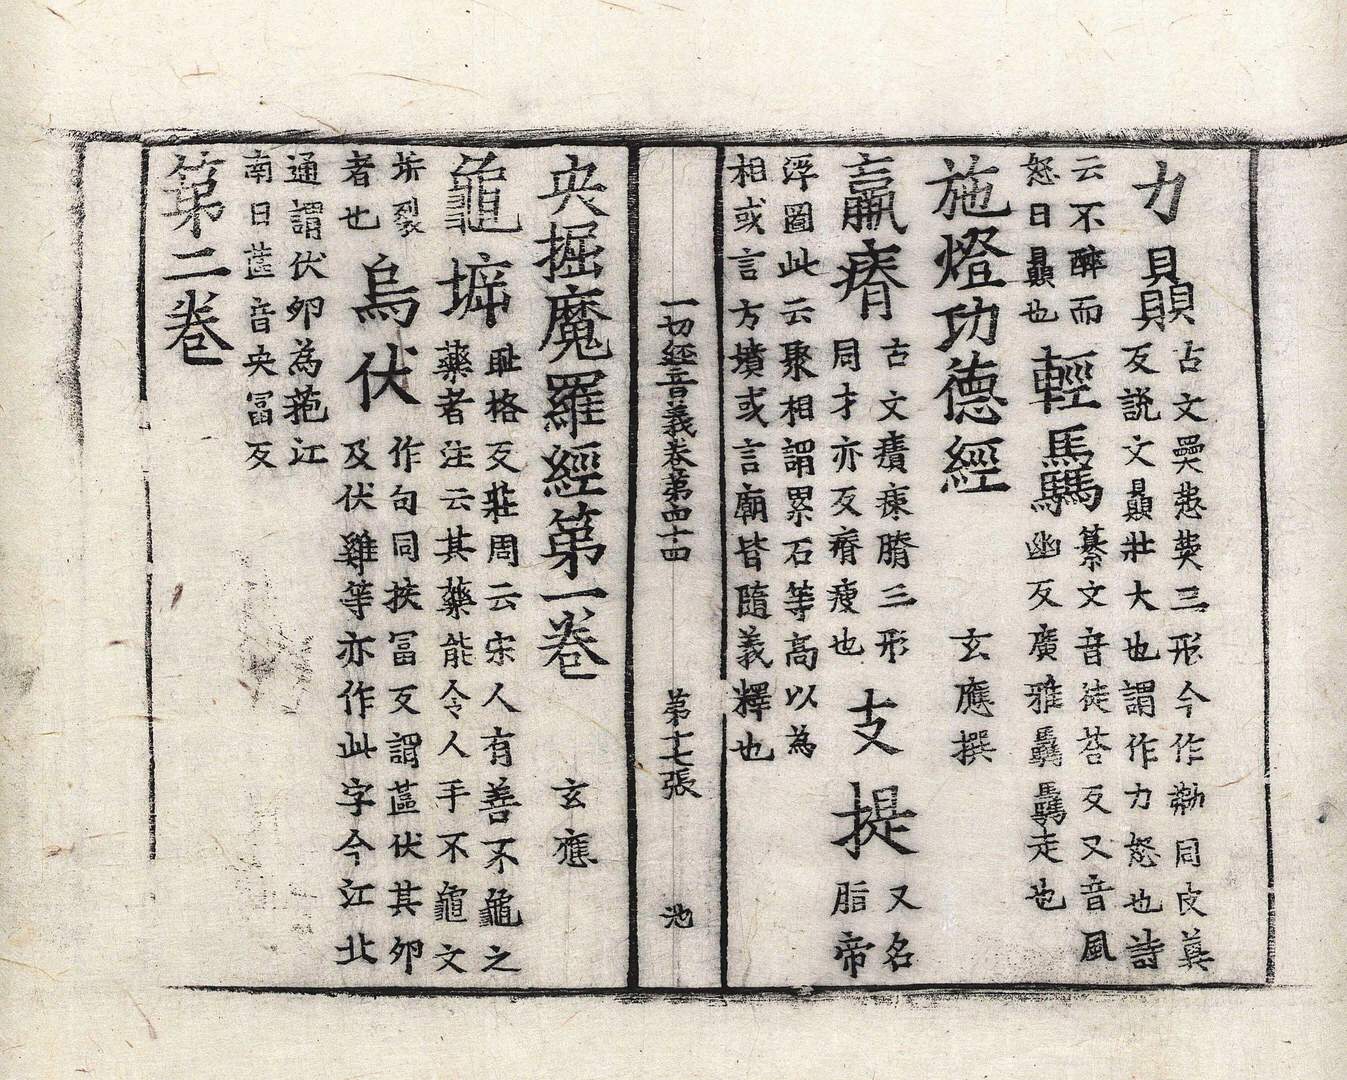 力贔
古文奰三形今作勬同皮冀
反説文贔壯大也謂作力怒也詩
云不醉而
怒曰贔也
輕驫
纂文音徒荅反又音風
幽反廣雅驫驫走也
施燈功德經 玄應撰
羸瘠
古文膌三形
同才亦反瘠瘦也
支提
又名
脂帝
浮圖此云聚相謂累石等高以為
相或言方墳或言廟皆隨義釋也
一切經音義卷第四十四 第十七張 池
央掘魔羅經第一卷 玄應
龜㙤
恥格反莊周云宋人有善不龜之
藥者注云其藥能令人手不龜文
坼裂
者也
烏伏
作句同扶冨反謂蓲伏其卵
及伏雞等亦作此字今江北
通謂伏卵為菢江
南曰蓲音央冨反
第二卷